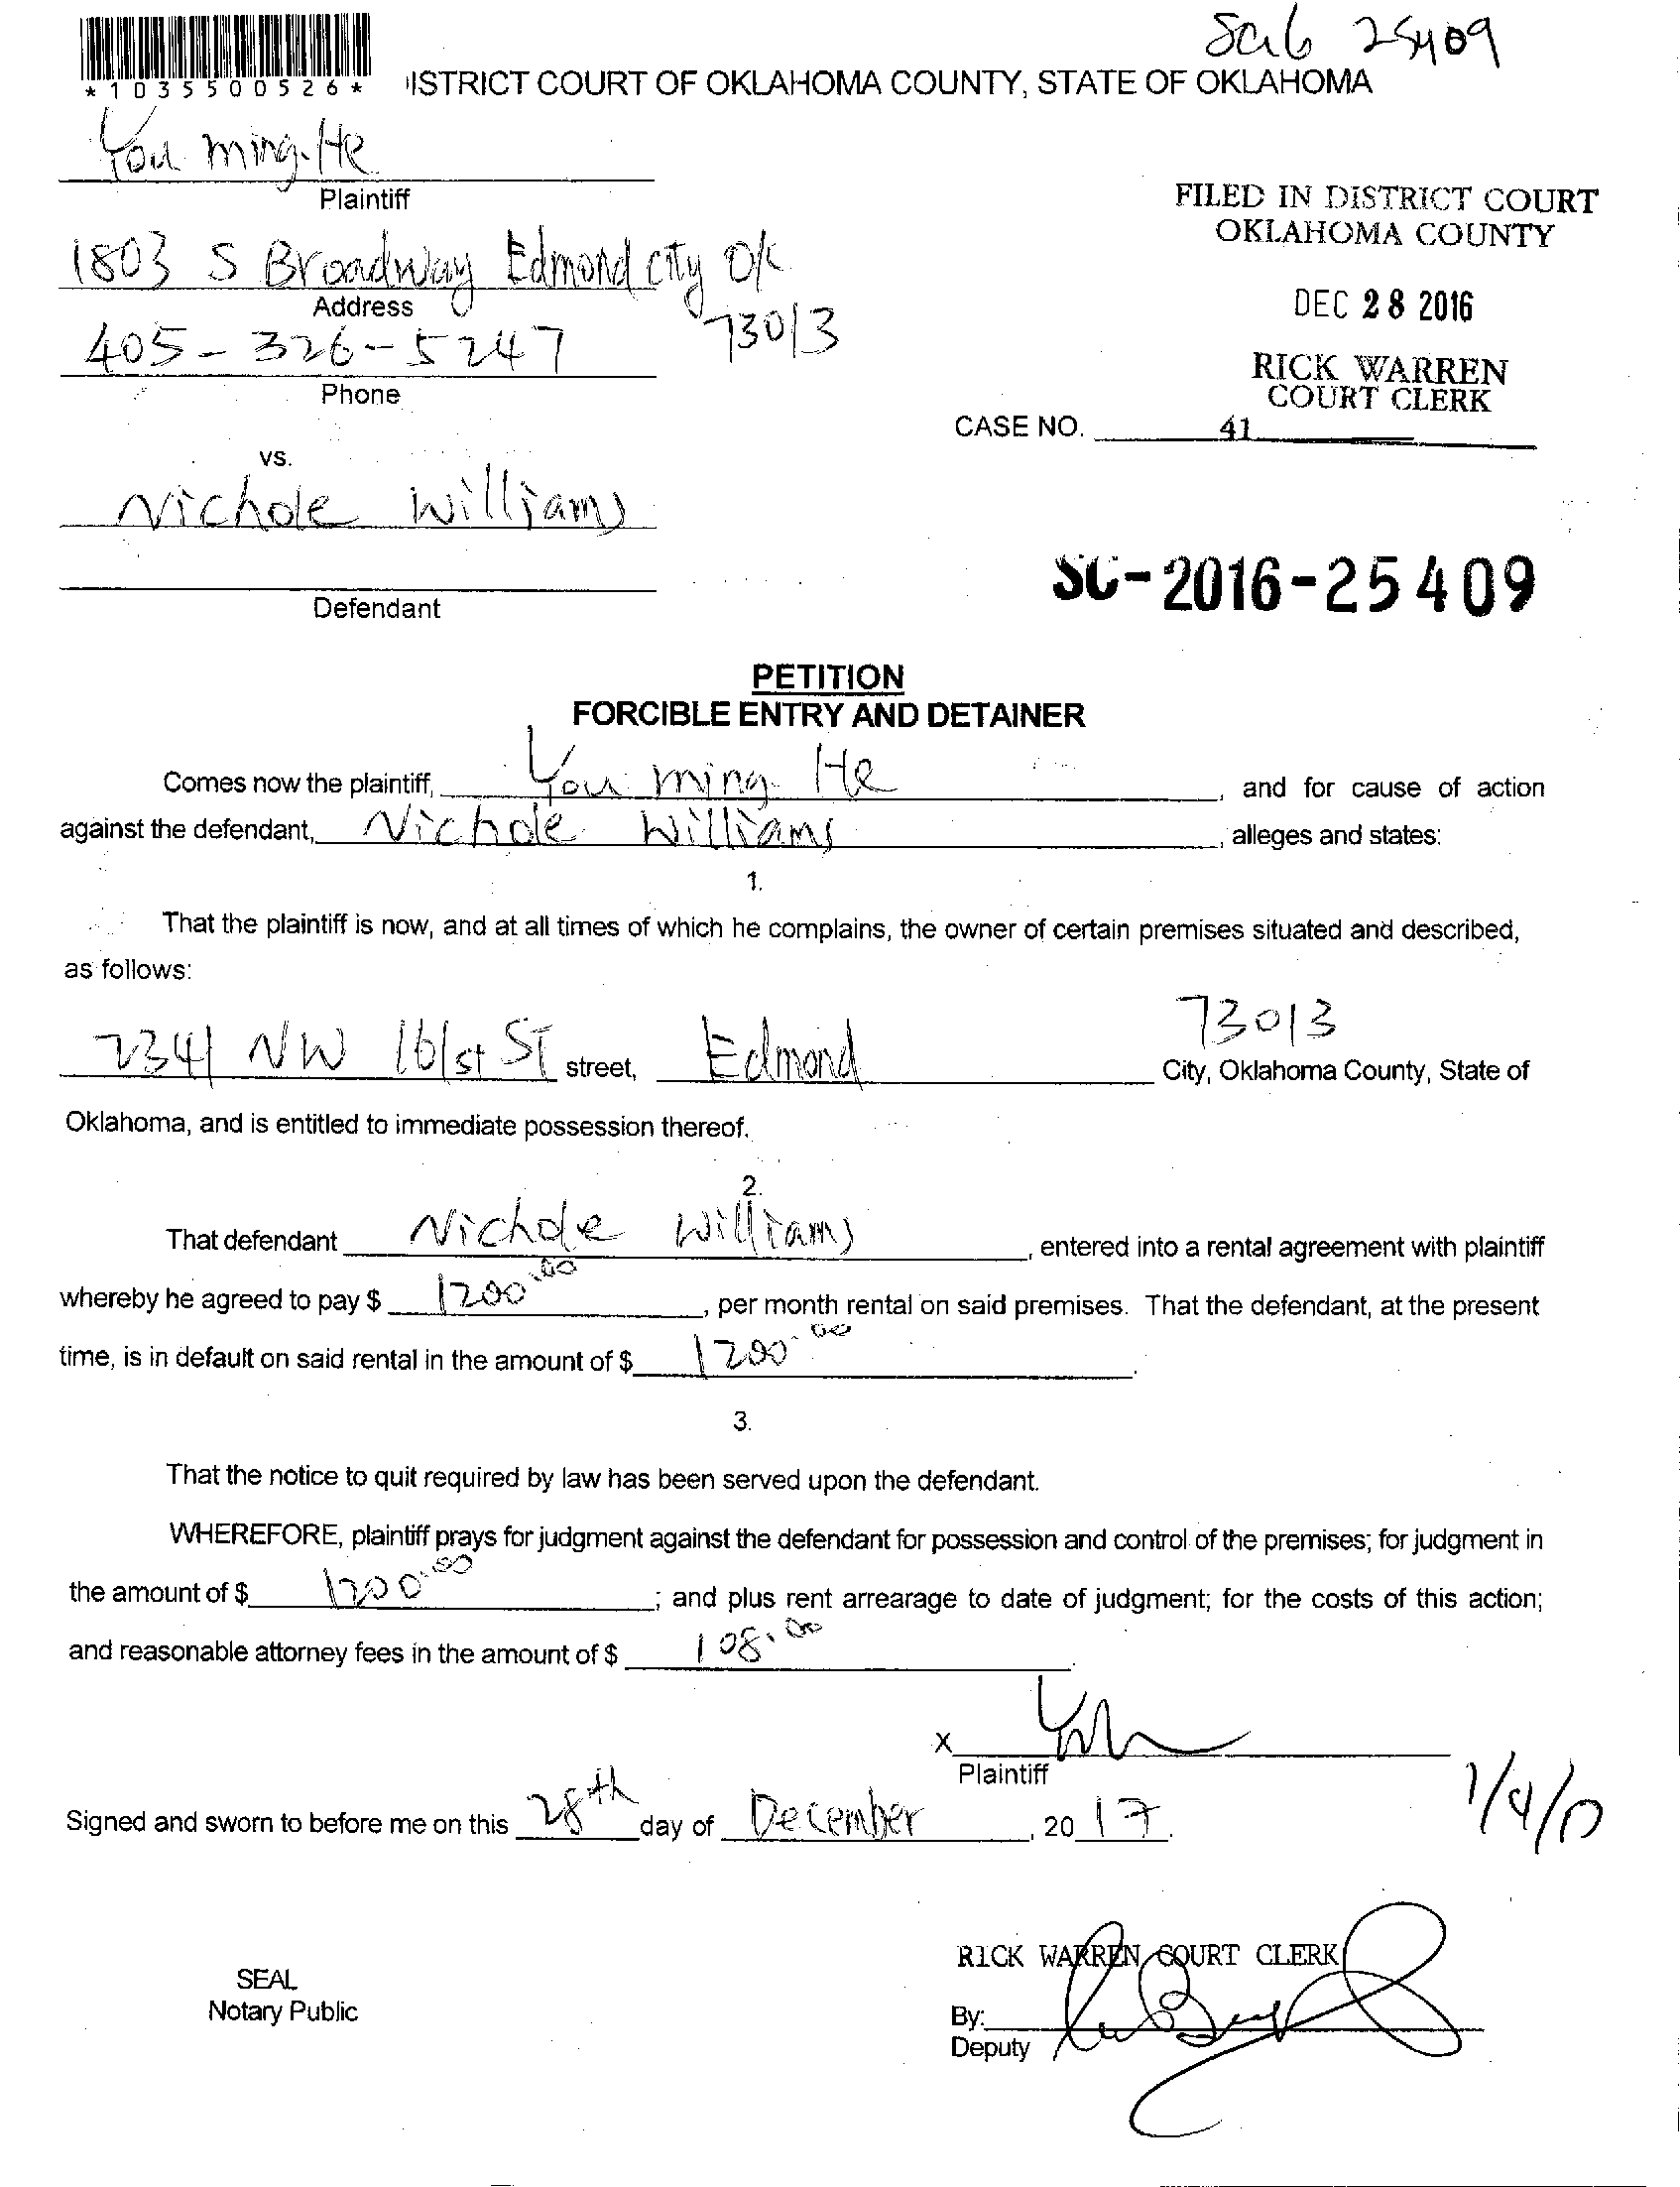 Sc16 25409
*1035500526*
ISTRICT COURT OF OKLAHOMA COUNTY, STATE OF OKLAHOMA
You ming He
Plaintiff
1803 S Broadway Edmond city OK
73013
Address
405-326-5247
Phone
FILED IN DISTRICT COURT
OKLAHOMA COUNTY
DEC 28 2016
RICK WARREN
COURT CLERK
CASE NO.
41
vs.
Nichole Williams
Defendant
SC-2016-25409
PETITION
FORCIBLE ENTRY AND DETAINER
Comes now the plaintiff, You ming He, and for cause of action
against the defendant, Nichole Williams, alleges and states:
1.
That the plaintiff is now, and at all times of which he complains, the owner of certain premises situated and described,
as follows:
73013
2341 NW 161st ST street, Edmond City, Oklahoma County, State of
Oklahoma, and is entitled to immediate possession thereof.
2.
That defendant Nichole Williams, entered into a rental agreement with plaintiff
whereby he agreed to pay $ 1200.00, per month rental on said premises. That the defendant, at the present
time, is in default on said rental in the amount of $ 1200.00.
3.
That the notice to quit required by law has been served upon the defendant.
WHEREFORE, plaintiff prays for judgment against the defendant for possession and control of the premises; for judgment in
the amount of $ 1200.00; and plus rent arrearage to date of judgment; for the costs of this action;
and reasonable attorney fees in the amount of $ 108.00.
X
Plaintiff
Signed and sworn to before me on this 28th day of December, 2017.
RICK WARREN COURT CLERK
SEAL
Notary Public
By:
Deputy